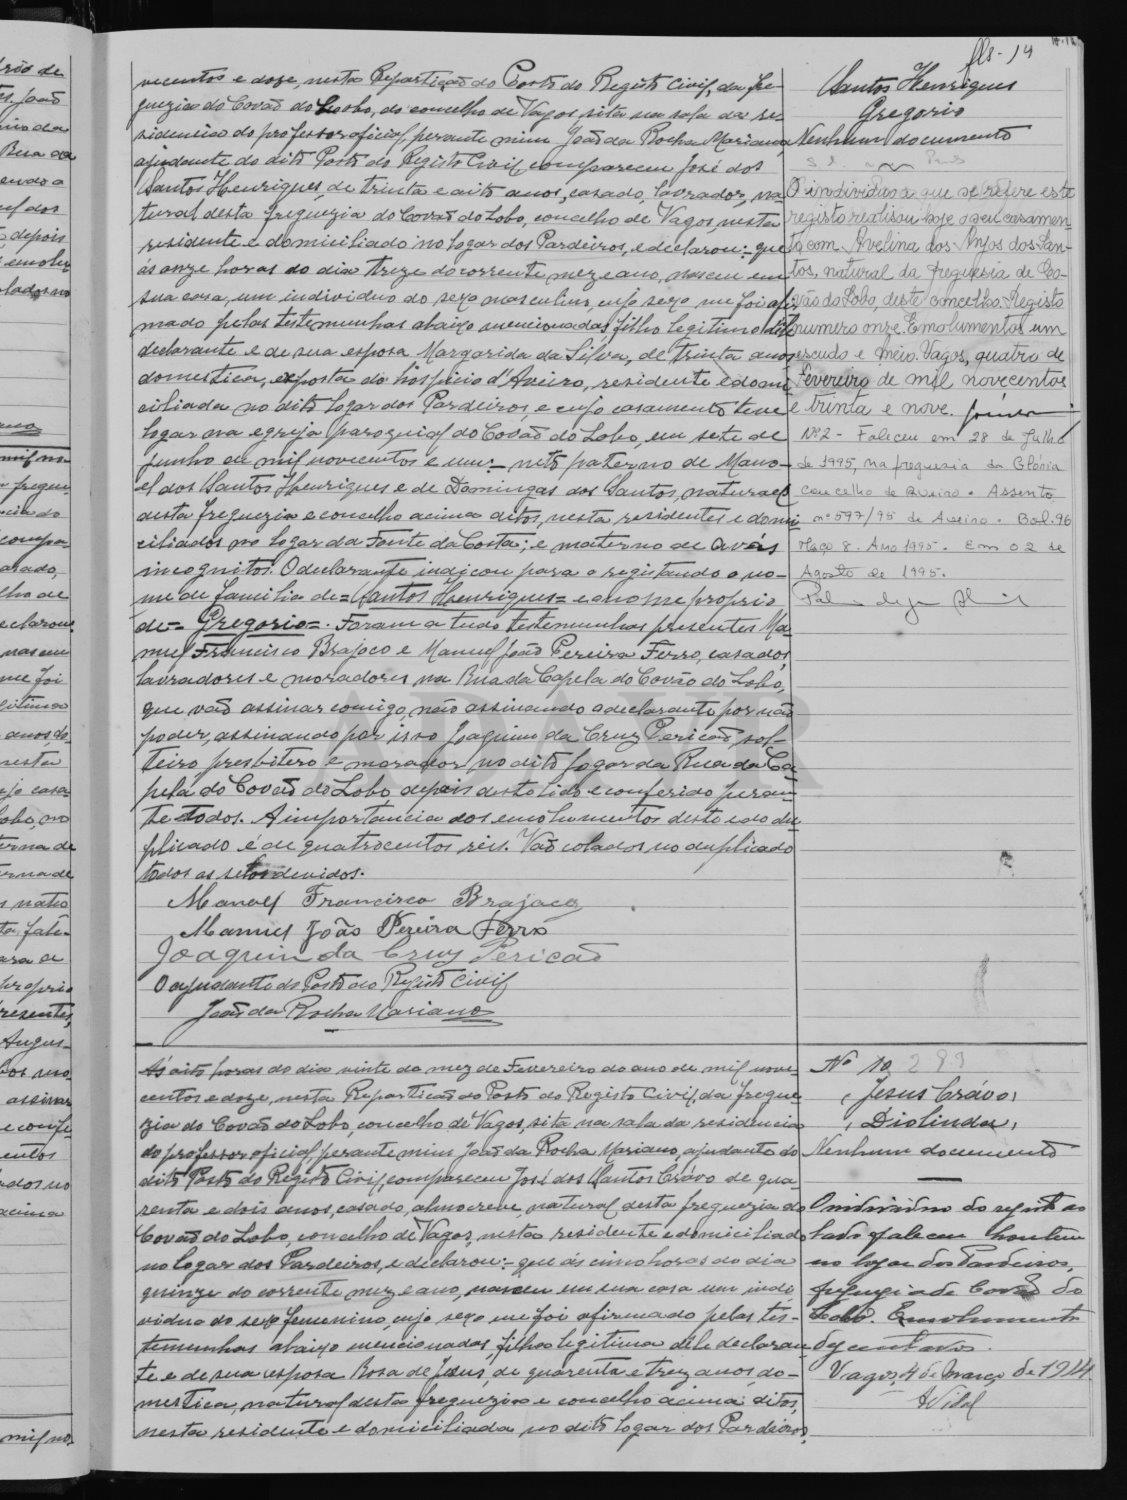 fls-14
vecentos e doze, nesta Repartição do Posto do Registo Civil, da fre-
guezia do Covão do Lobo, do concelho de Vagos, sita na sala da re-
sidencia do professor oficial, perante mim João da Rocha Mariano,
ajudante do dito Posto do Registo Civil, compareceu José dos
Santos Henriques, de trinta e oito anos, casado, lavrador, na-
tural desta freguezia do Covão do Lobo, concelho de Vagos, nesta
residente e domiciliado no logar dos Pardeiros, e declarou:- que
ás onze horas do dia treze do corrente mez e ano, nasceu em
sua casa, um individuo do sexo masculino, cujo sexo me foi afir-
mado pelas testemunhas abaixo mencionadas, filho legitimo dele
declarante e de sua esposa Margarida da Silva, de trinta anos,
domestica, exposta do hospicio d'Aveiro, residente e domi-
ciliada no dito logar dos Pardeiros, e cujo casamento teve
logar na egreja paroquial do Covão do Lobo, em sete de
junho de mil novecentos e um:- neto paterno de Mano-
el dos Santos Henriques e de Domingas dos Santos, naturaes
desta freguezia e concelho acima ditos, nesta residentes e domi-
ciliados no logar da Fonte da Costa; e materno de avós
incognitos. O declarante indicou para o registando o no-
me de familia de= Santos Henriques= e a nome proprio
de= Gregorio=. Foram a tudo testemunhas presentes Ma-
nuel Francisco Brajoco e Manuel João Pereira Ferro, casados,
lavradores e moradores na Rua da Capela do Covão do Lobo,
que vão assinar comigo, não assinando a declarante por não
poder, assinando por isso Joaquim da Cruz Pericão, sol-
teiro presbitero e morador no dito logar da Rua da Ca-
pela do Covão do Lobo, depois desto lido e conferido peran-
te todos. A importancia dos emolumentos deste e do du-
plicado é de quatrocentos reis. Vão colados no duplicado
todos os selos devidos.
Manoel Francisco Brajoco
Manuel João Pereira Ferro
Joaquim da Cruz Pericão
O ajudante do Posto do Registo Civil
João da Rocha Mariano
Santos Henriques
Gregorio
Nenhum documento
O individuo a que se refere este
registo realisou hoje o seu casamen-
to com Avelina dos Anjos dos San-
tos, natural da freguesia de Co-
vão do Lobo, deste concelho. Registo
numero onze. Emolumentos um
escudo e meio. Vagos, quatro de
Fevereiro de mil novecentos
e trinta e nove.
Nº2 - Faleceu em 28 de Julho
de 1995, na freguesia da Glória
concelho de Aveiro. Assento
nº 597/95 de Aveiro. Bol. 96
Maço 8. Ano 1995. Em 02 de
Agosto de 1995.
Ás oito horas do dia vinte do mez de Fevereiro do ano de mil nove-
centos e doze, nesta Repartição do Posto do Registo Civil, da fregue-
zia do Covão do Lobo, concelho de Vagos, sita na sala da residencia
do professor oficial, perante mim João da Rocha Mariano, ajudante do
dito Posto do Registo Civil, compareceu José dos Santos Crávo de qua-
renta e dois anos, casado, almocreve, natural desta freguezia do
Covão do Lobo, concelho de Vagos, nesta residente e domiciliado
no logar dos Pardeiros, e declarou:- que ás cinco horas do dia
quinze do corrente mez e ano, nasceu em sua casa um indi-
viduo do sexo femenino, cujo sexo me foi afirmado pelas tes-
temunhas abaixo mencionadas, filha legitima dele declaran-
te e de sua esposa Rosa de Jesus, de quarenta e trez anos, do-
mestica, natural desta freguezia e concelho acima ditos,
nesta residente e domiciliada no dito logar dos Pardeiros,
Nº 10 289
Jesus Crávo,
Diolinda,
Nenhum documento
O individuo do registo ao
lado faleceu hontem
no logar dos Pardeiros,
freguezia de Covão do
Lobo. Emolumentos
centavos.
Vagos, 4 de Março de 1914
AVidal